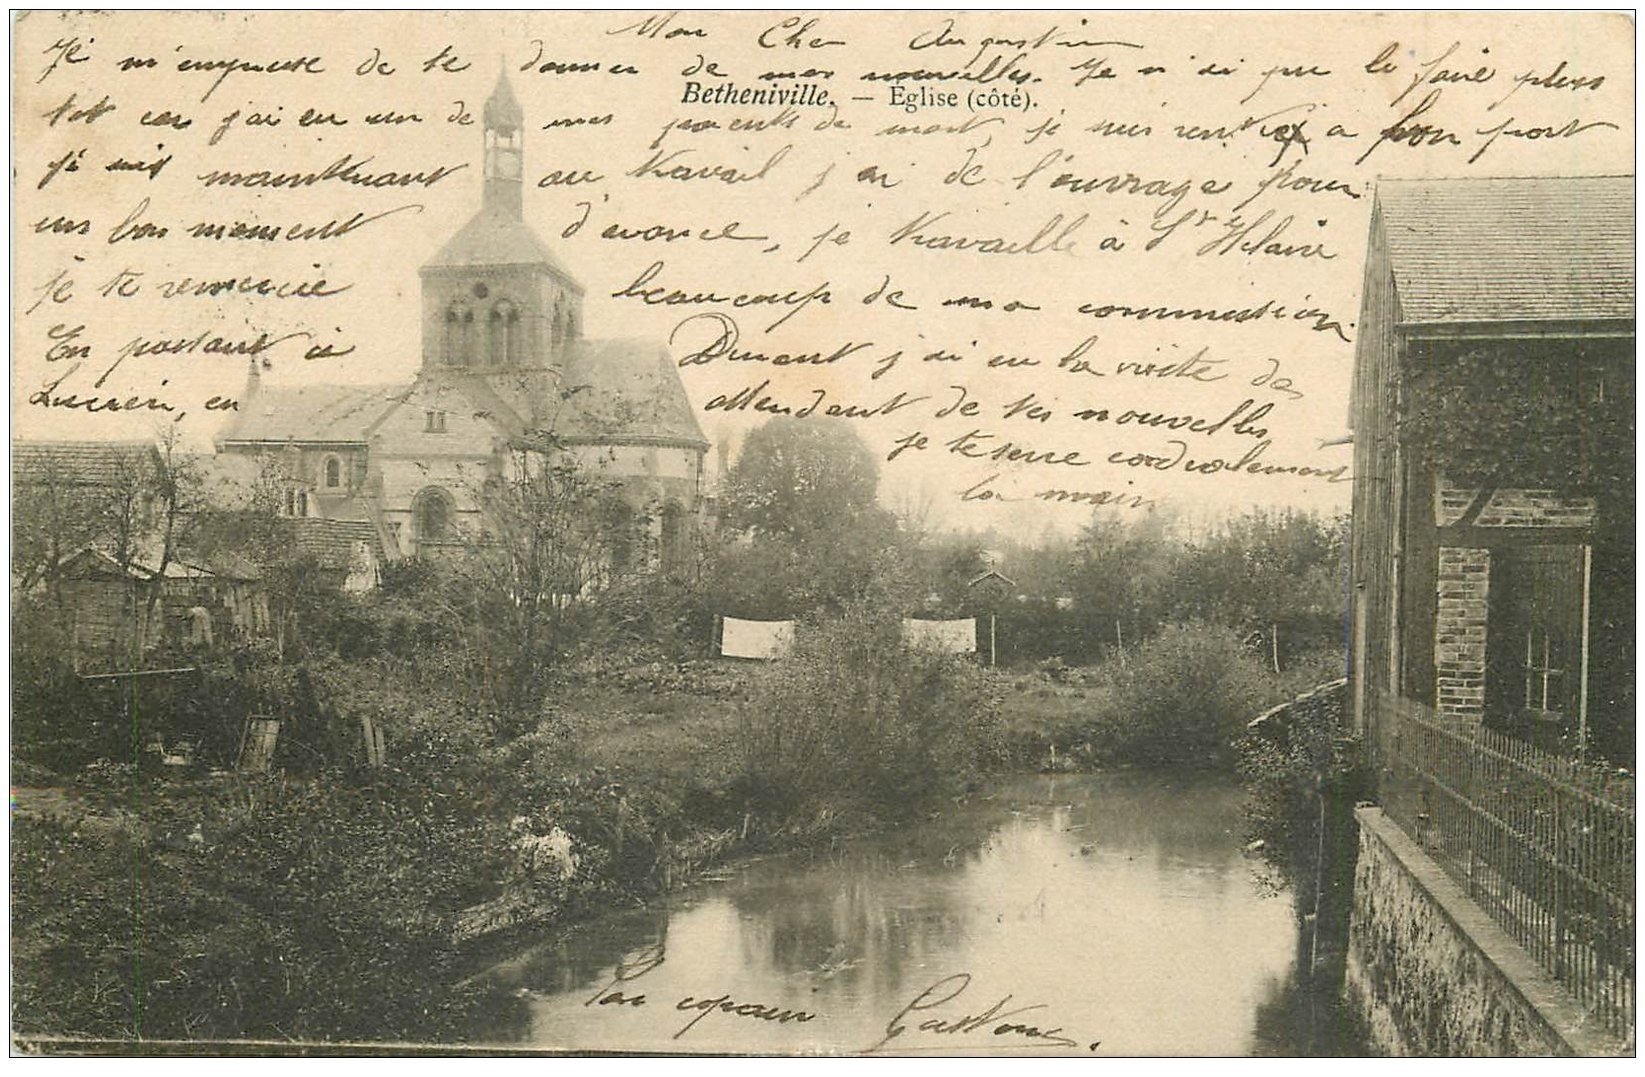 Mon Cher Augustin
Je m'empresse de te donner de mes nouvelles. Je n'ai pu le faire plus
tot car j'ai eu un de mes parents de mort, je suis rentré a bon port
je suis maintenant au travail j'ai de l'ouvrage pour
un bon moment d'avance, je travaille à St Hilaire
je te remercie beaucoup de ma commission.
En partant à j'ai eu la visite de
Lucien, en attendant de tes nouvelles
je te serre cordialement
la main
Betheniville. — Eglise (côté).
Ton copain Gaston.